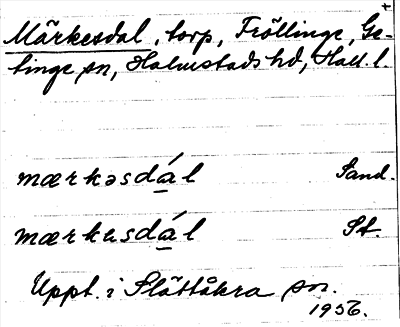 Märkesdal, torp, Fröllinge, Ge-
tinge sn, Halmstads hd, Hall. l.
mærkəsdá̲l Sand.
mærkɐsdá̲l St.
Uppt. i Slättåkra sn.
1956.